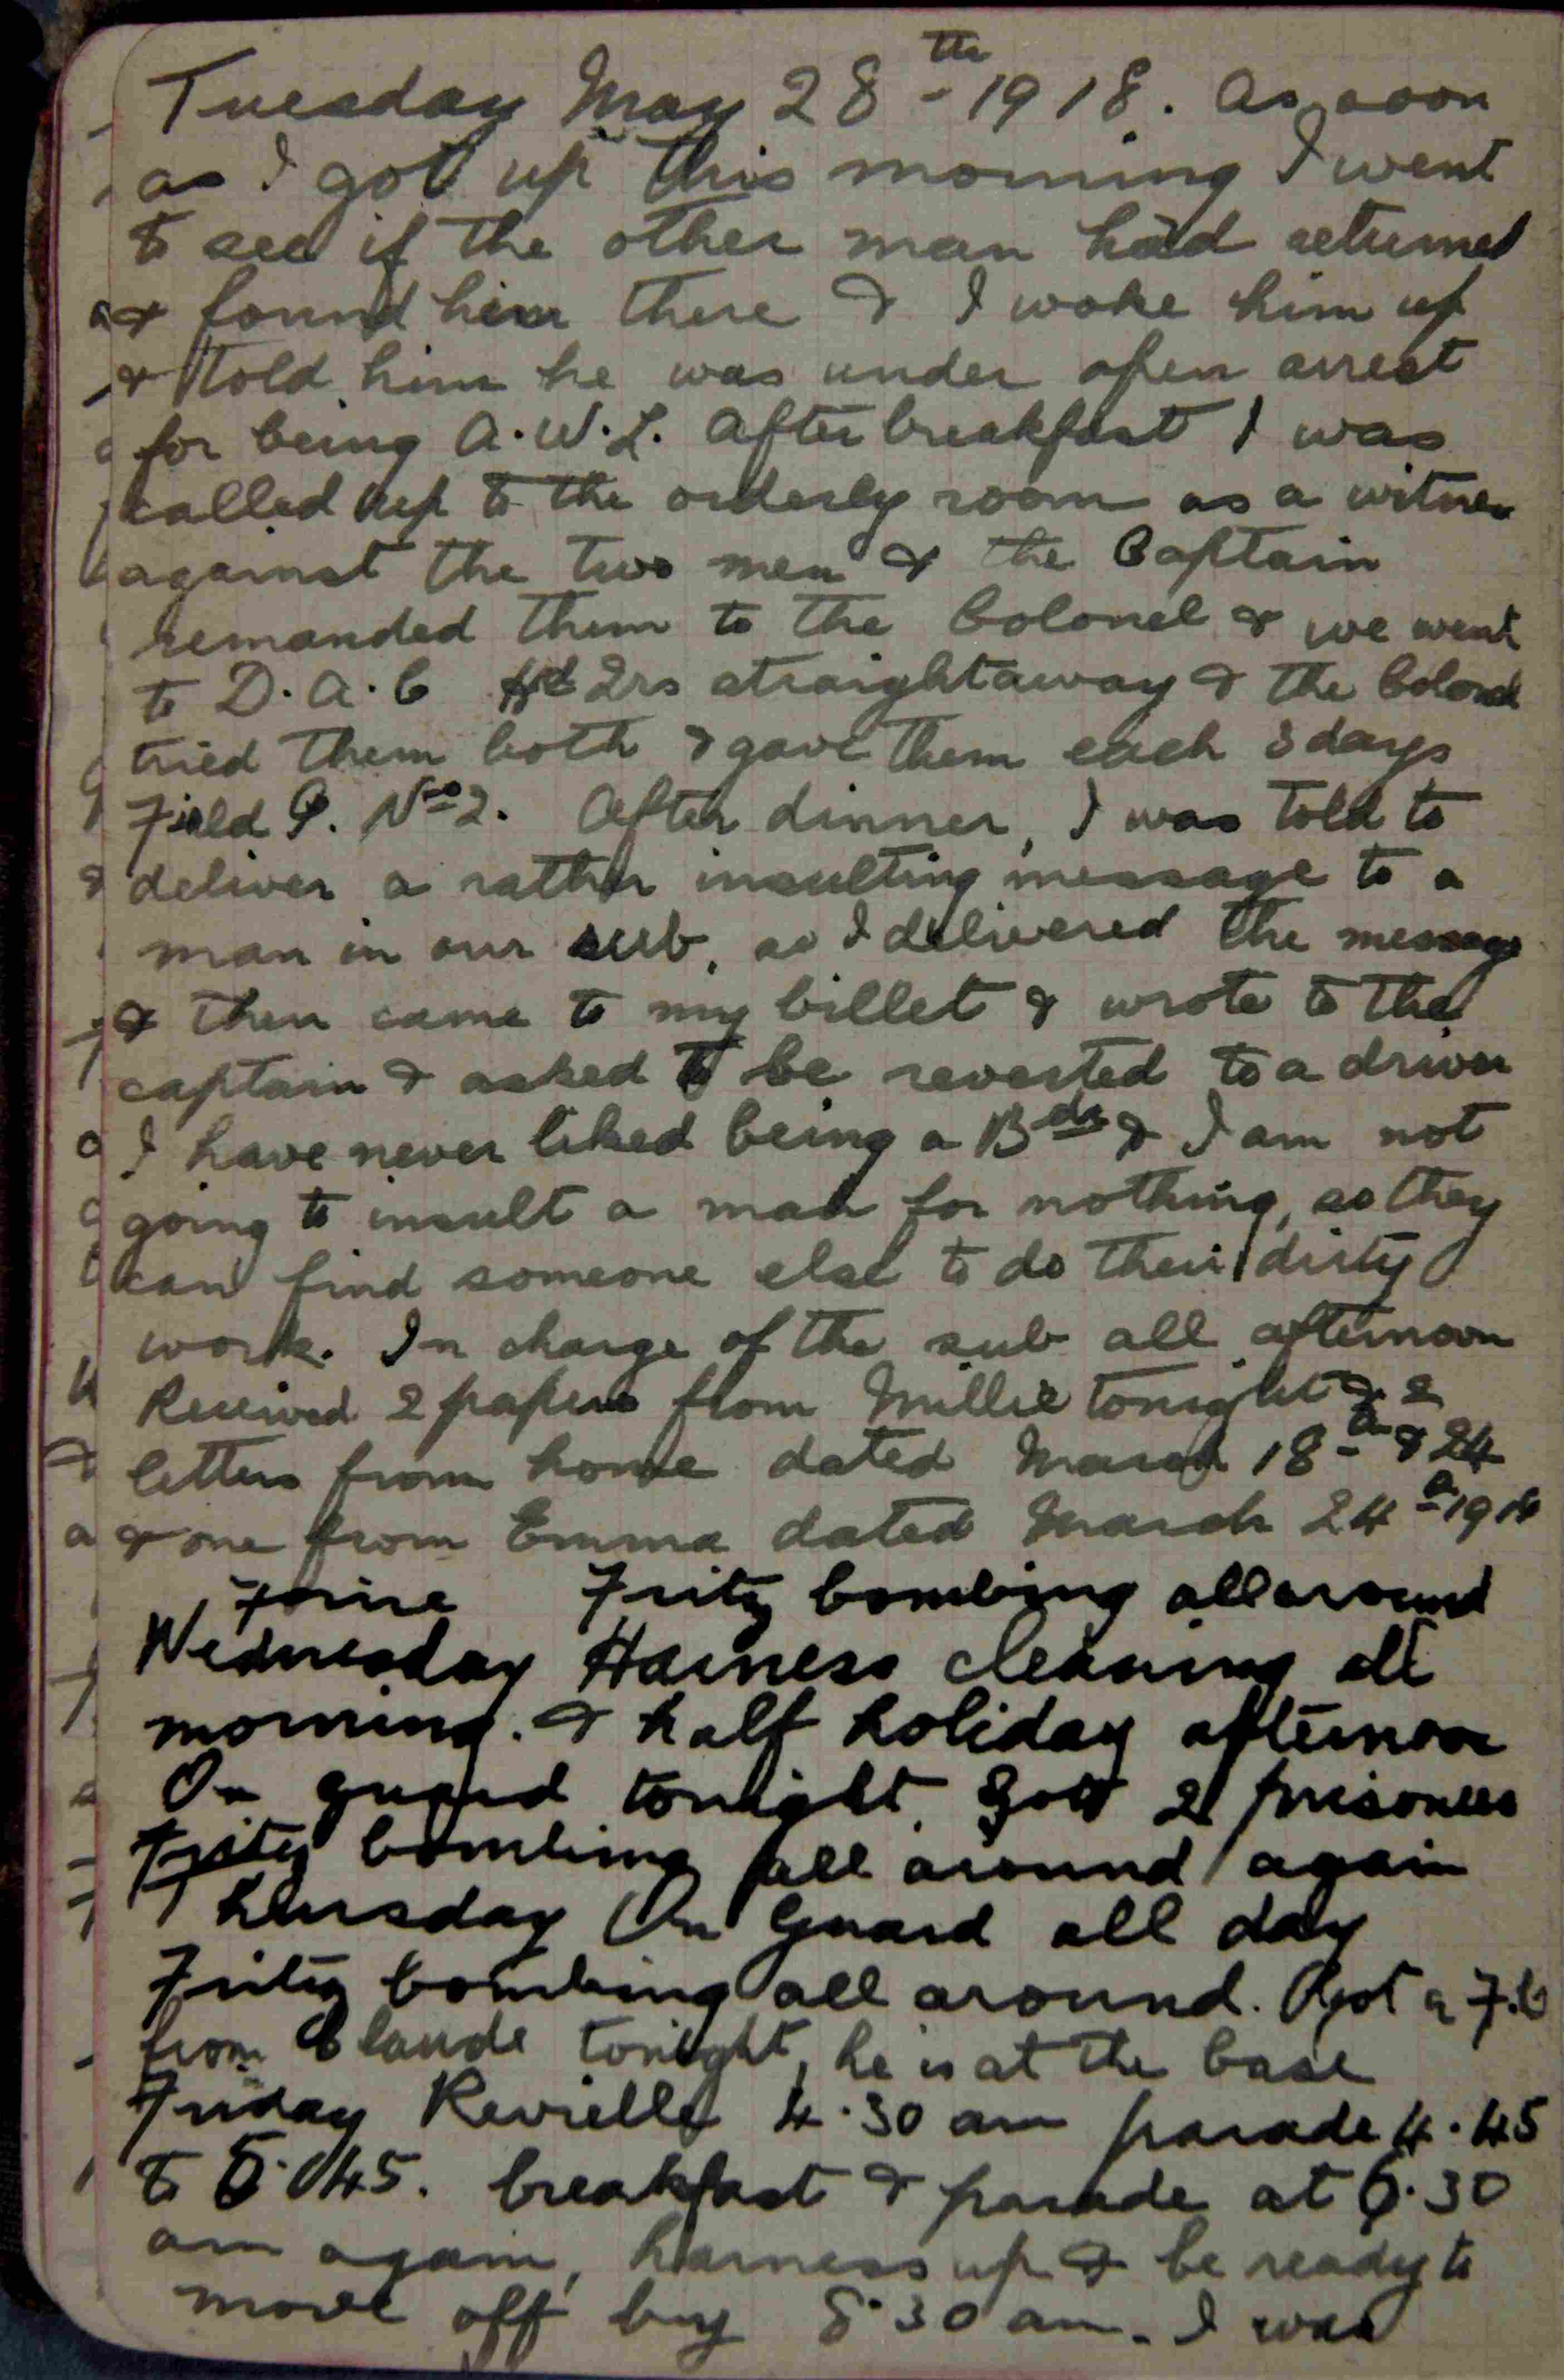 Tuesday May 28th 1918. As soon
as I got up this morning I went
to see if the other man had returned
& found him there & I woke him up
& told him he was under open arrest
for being A.W.L. After breakfast I was
called up to the orderly room as a witness
against the two men & the Captain
remanded them to the Colonel & we went
to D.A.C Hd Qrs straightaway & the Colonel
tried them both & gave them each 3 days
Field P. No 2. After dinner, I was told to
deliver a rather insulting message to a
man in our sub, so I delivered the message
& then came to my billet & wrote to the
captain & asked to be reverted to a driver
I have never liked being a Bdr & I am not
going to insult a man for nothing, so they
can find someone else to do their dirty
work. In charge of the sub all afternoon
Received 2 papers from Millie tonight & 2
letters from home dated March 18th & 24
& one from Emma dated March 24th 1918
Forire Fritz bombing all around
Wednesday Harness cleaning all
morning. & half holiday afternoon
On guard tonight. Got 2 prisoners
Fritz bombing all around again
Thursday On Guard all day
Fritz bombing all around. Got a F.C
from Claude tonight, he is at the base
Friday Revielle 4.30 am parade 4.45
to 5.45. breakfast & parade at 6.30
am again, harness up & be ready to
move off buy 8.30 am. I was